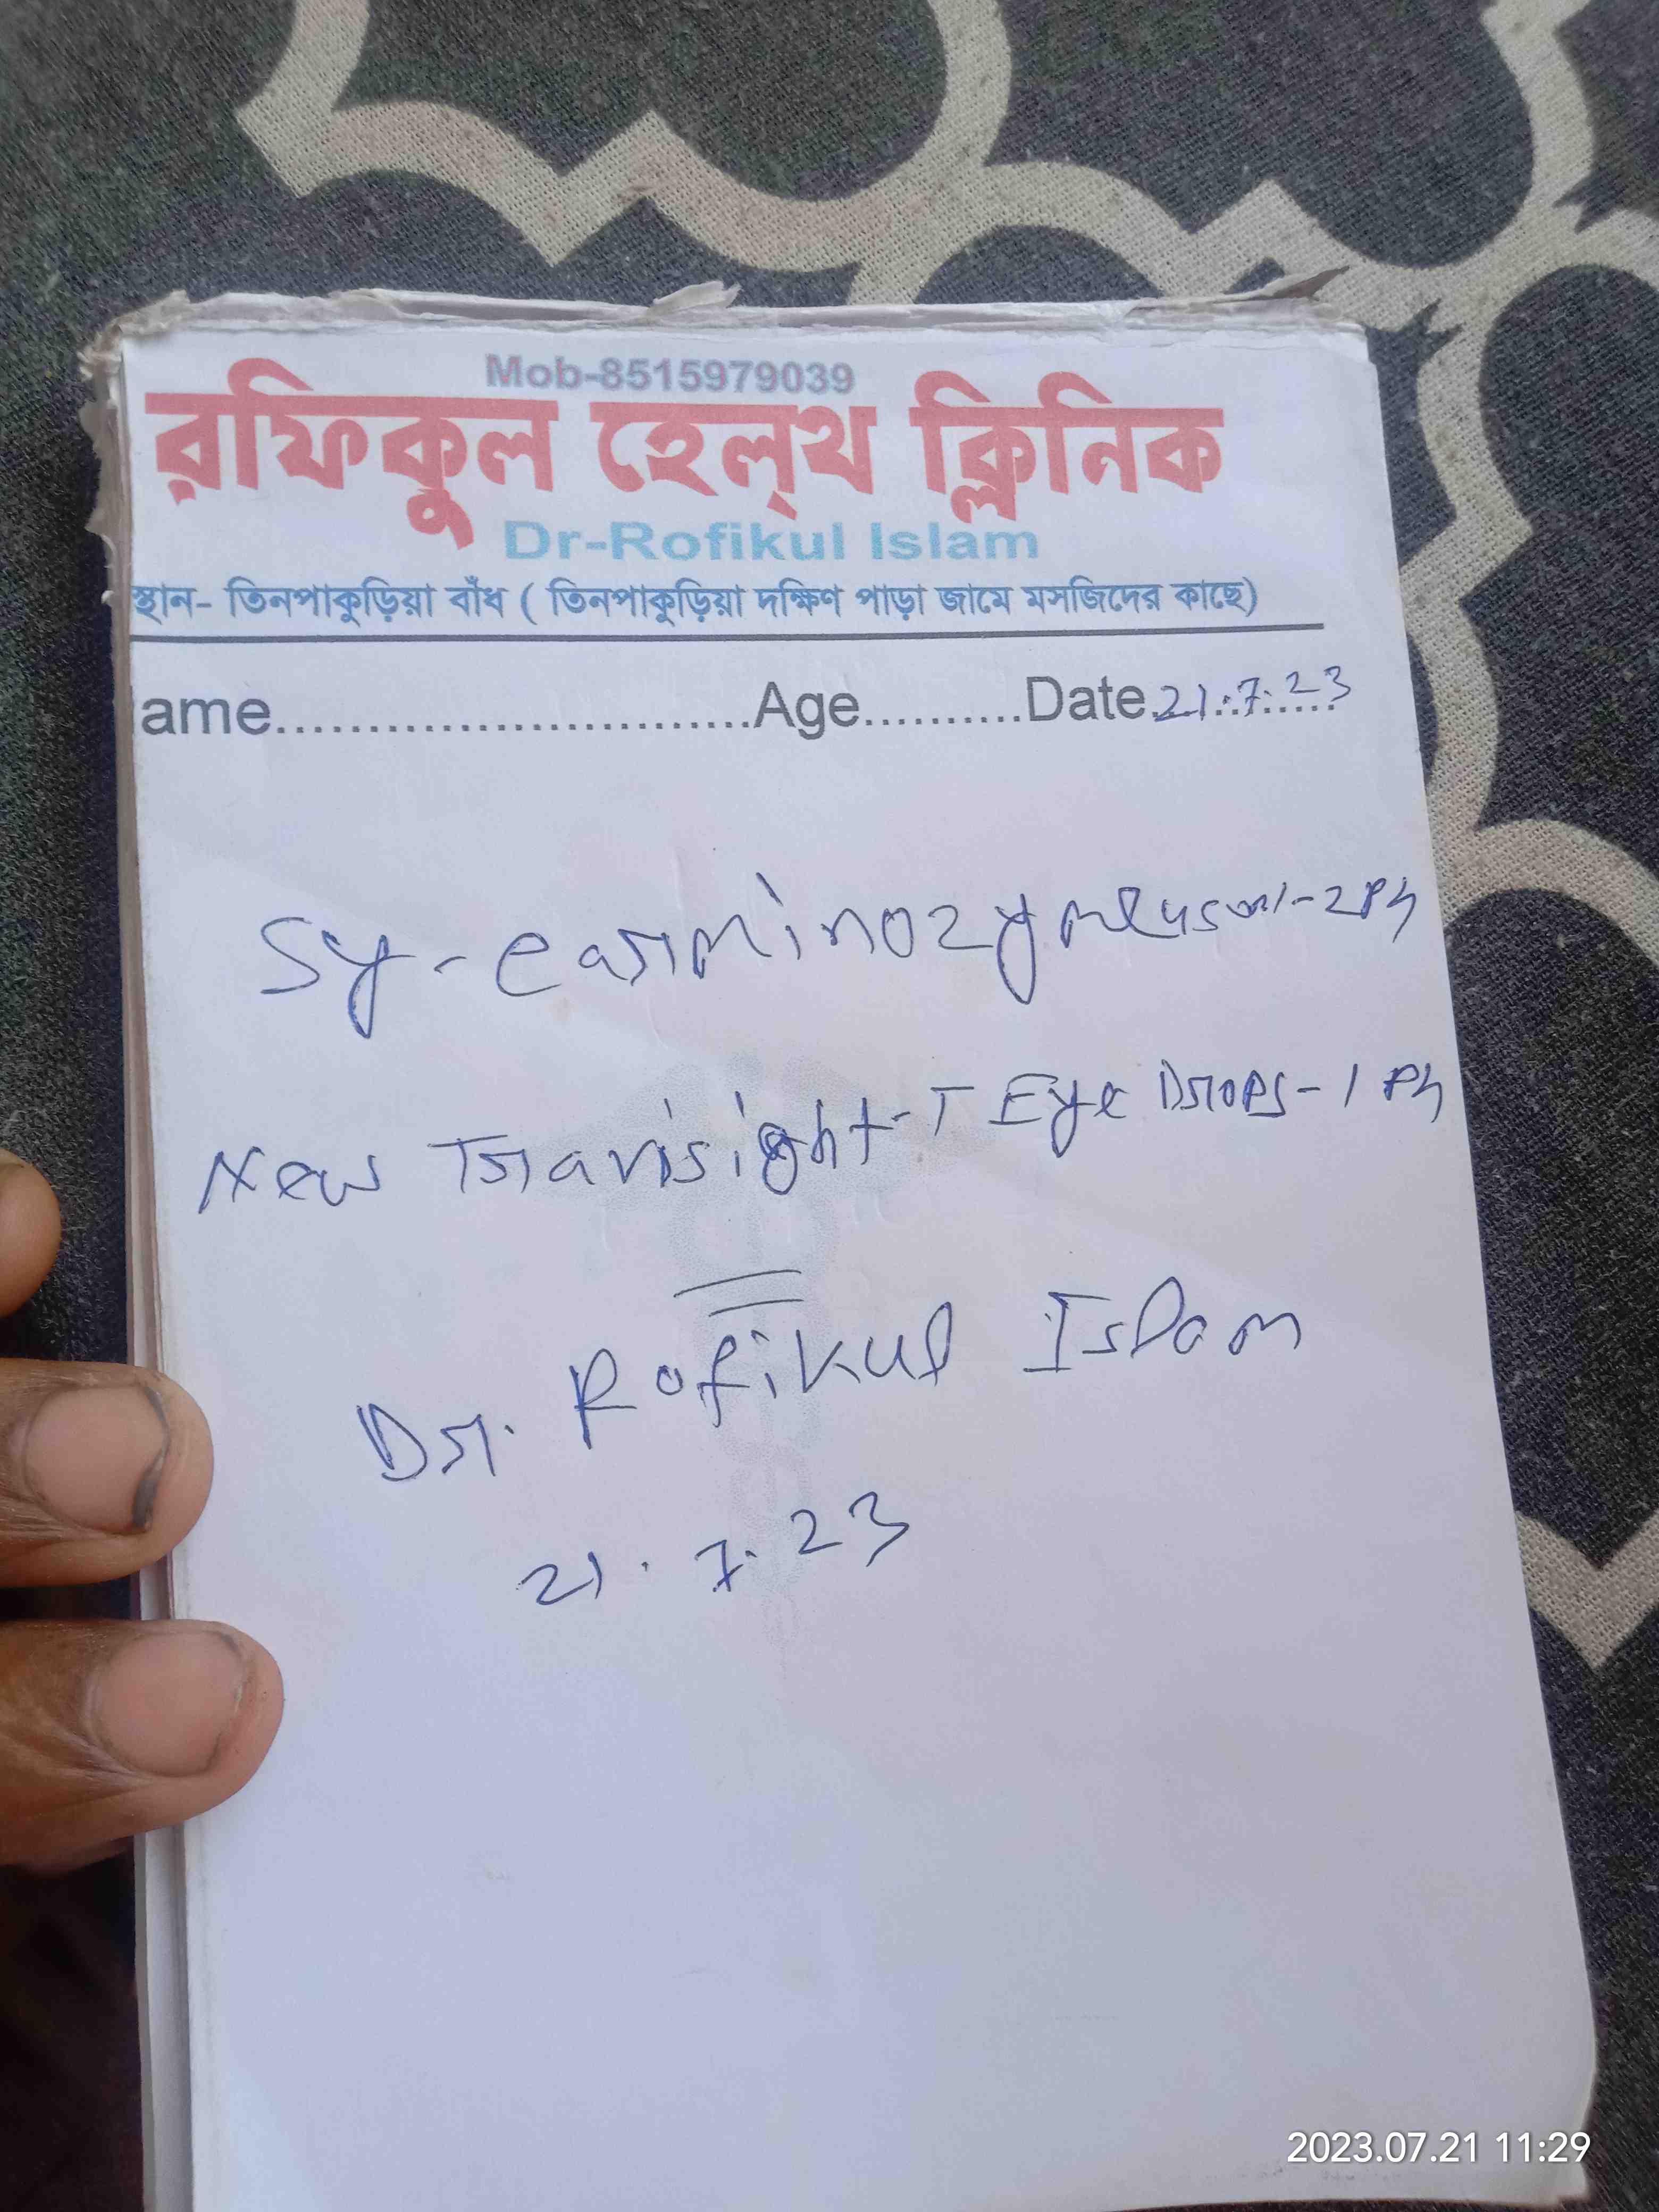 Mob-8515979039
রফিকুল হেল্‌থ ক্লিনিক
Dr-Rofikul Islam
স্থান- তিনপাকুড়িয়া বাঁধ ( তিনপাকুড়িয়া দক্ষিণ পাড়া জামে মসজিদের কাছে)
ame............................Age..........Date 21.7.23
Sy-carminozyme 450ml-2Ph
New Travisight-T Eye Drops-1 Ph
Dr. Rofikul Islam
21.7.23
2023.07.21 11:29